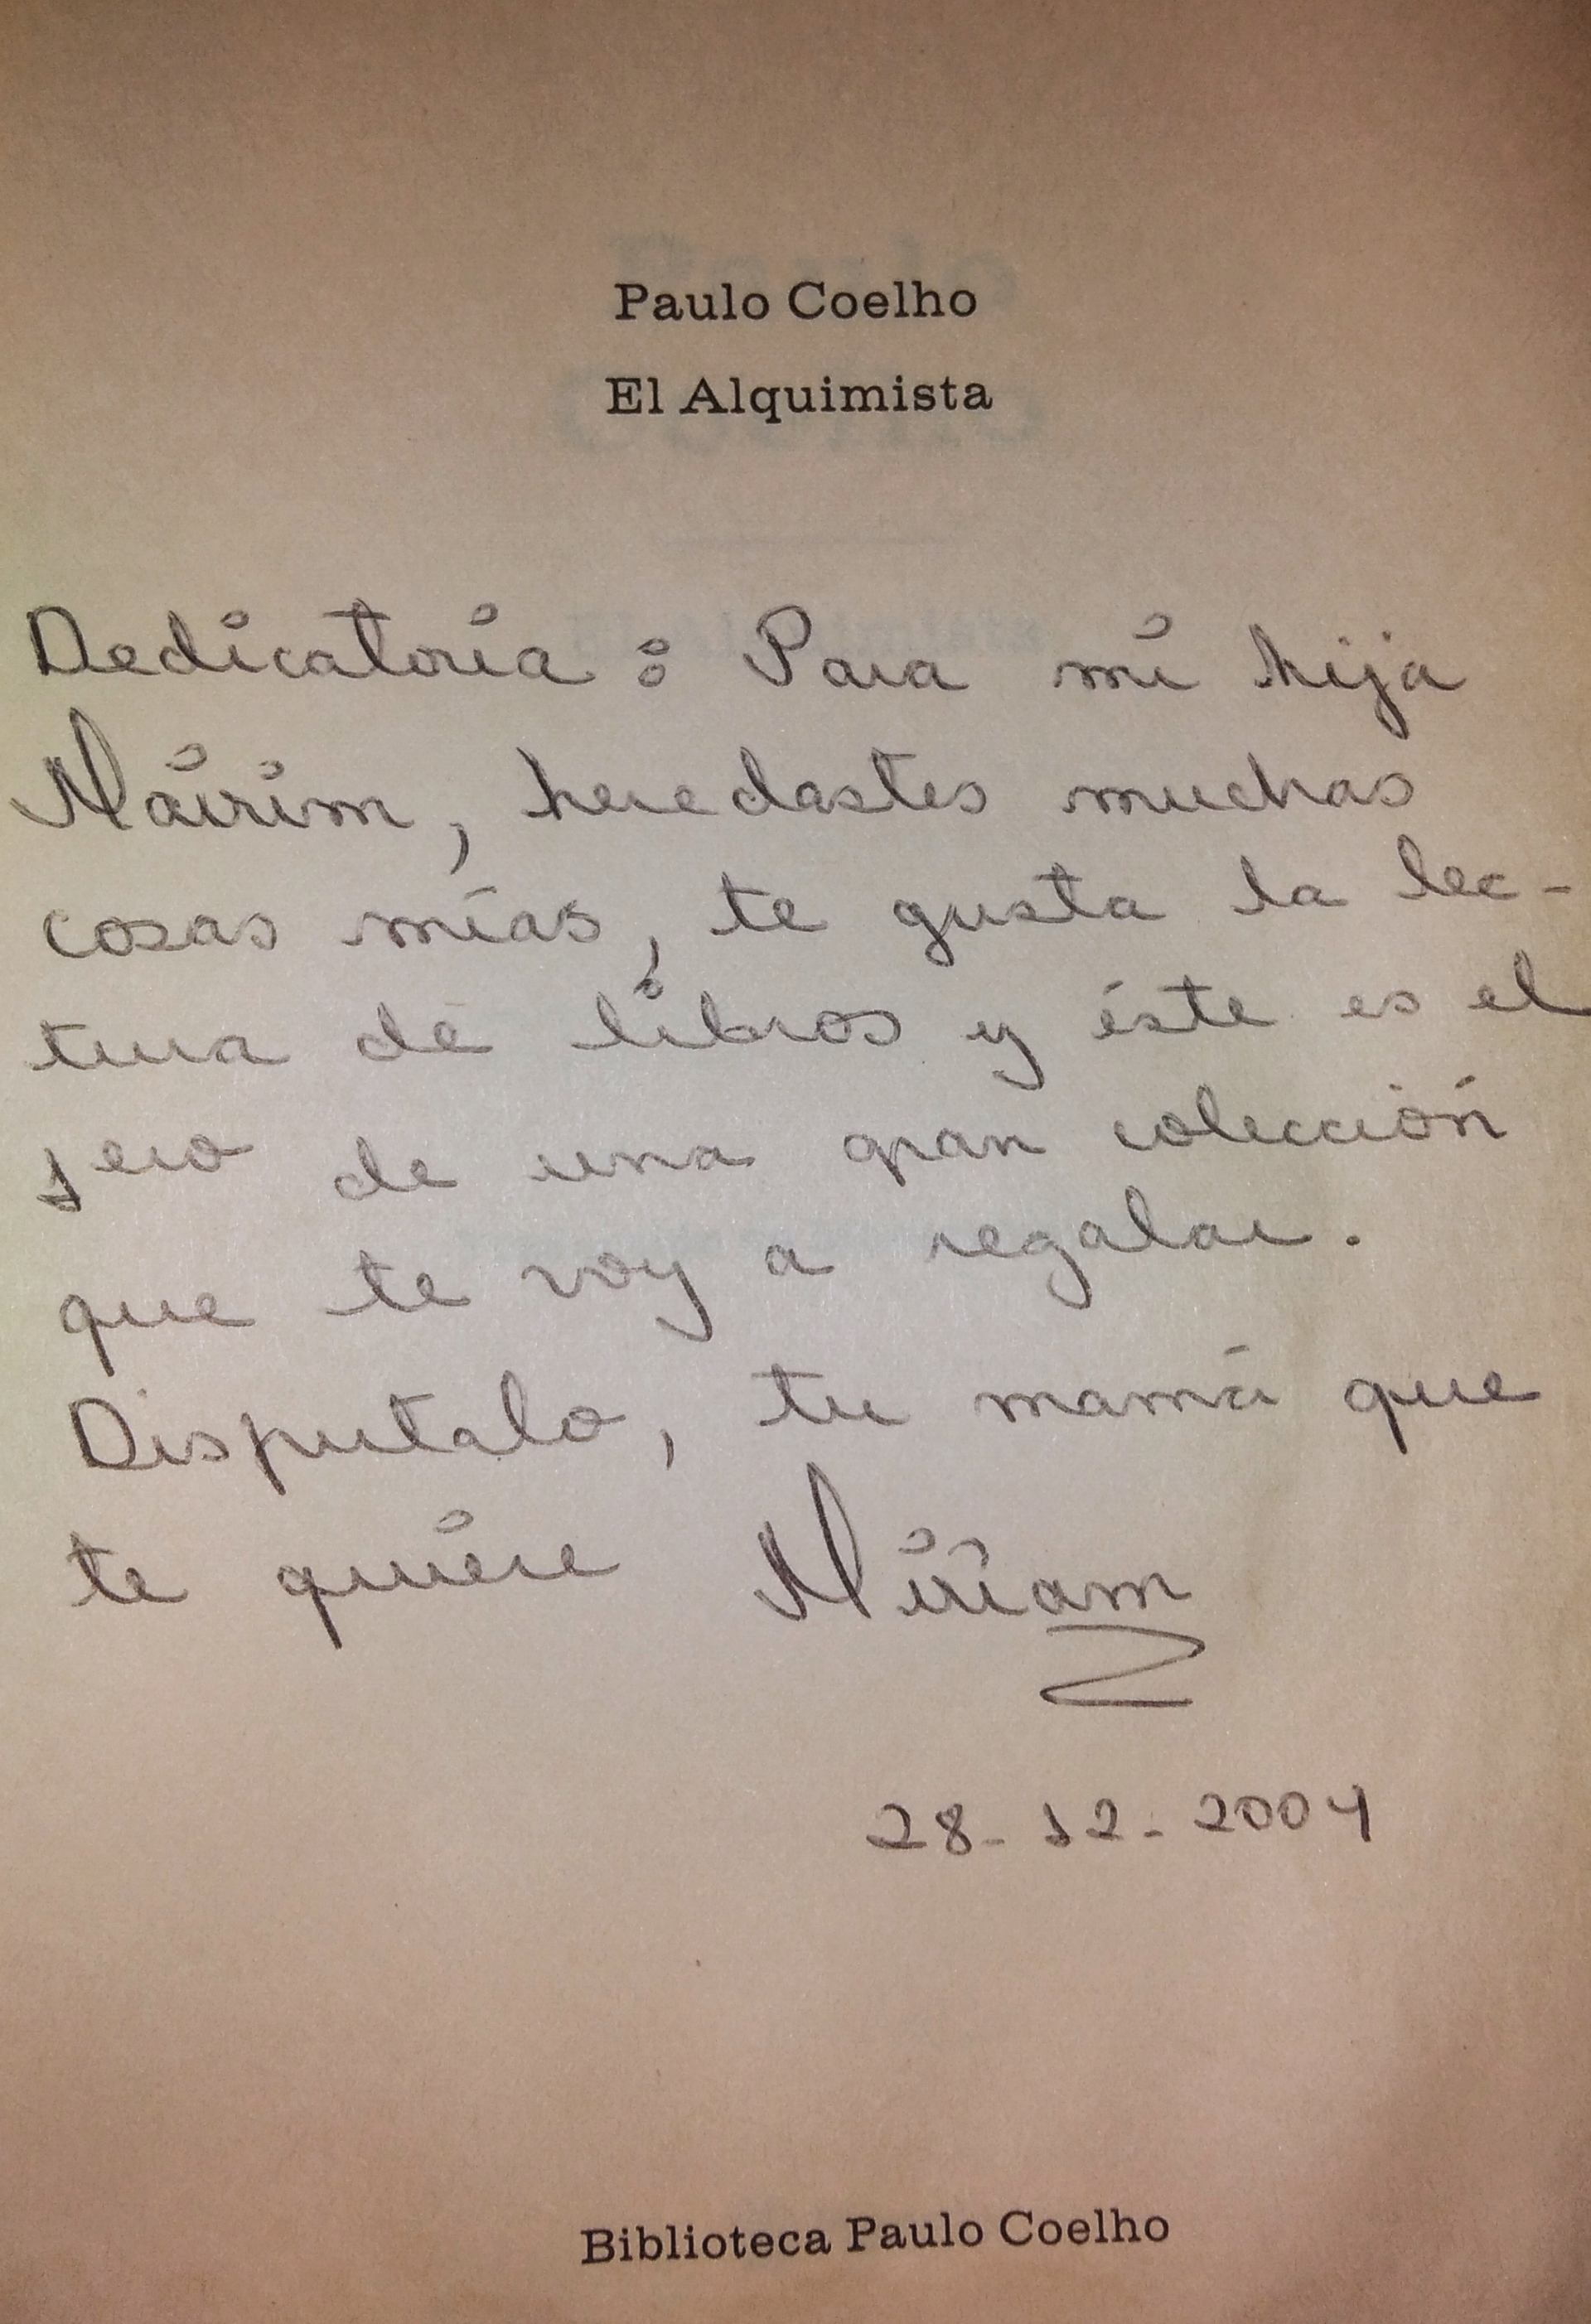 Paulo Coelho
El Alquimista
Dedicatoria: Para mi hija
Mairim, heredastes muchas
cosas mías, te gusta la lec-
tura de libros y éste es el
1ero de una gran colección
que te voy a regalar.
Disfrutalo, tu mamá que
te quiere Miriam
28-12-2004
Biblioteca Paulo Coelho